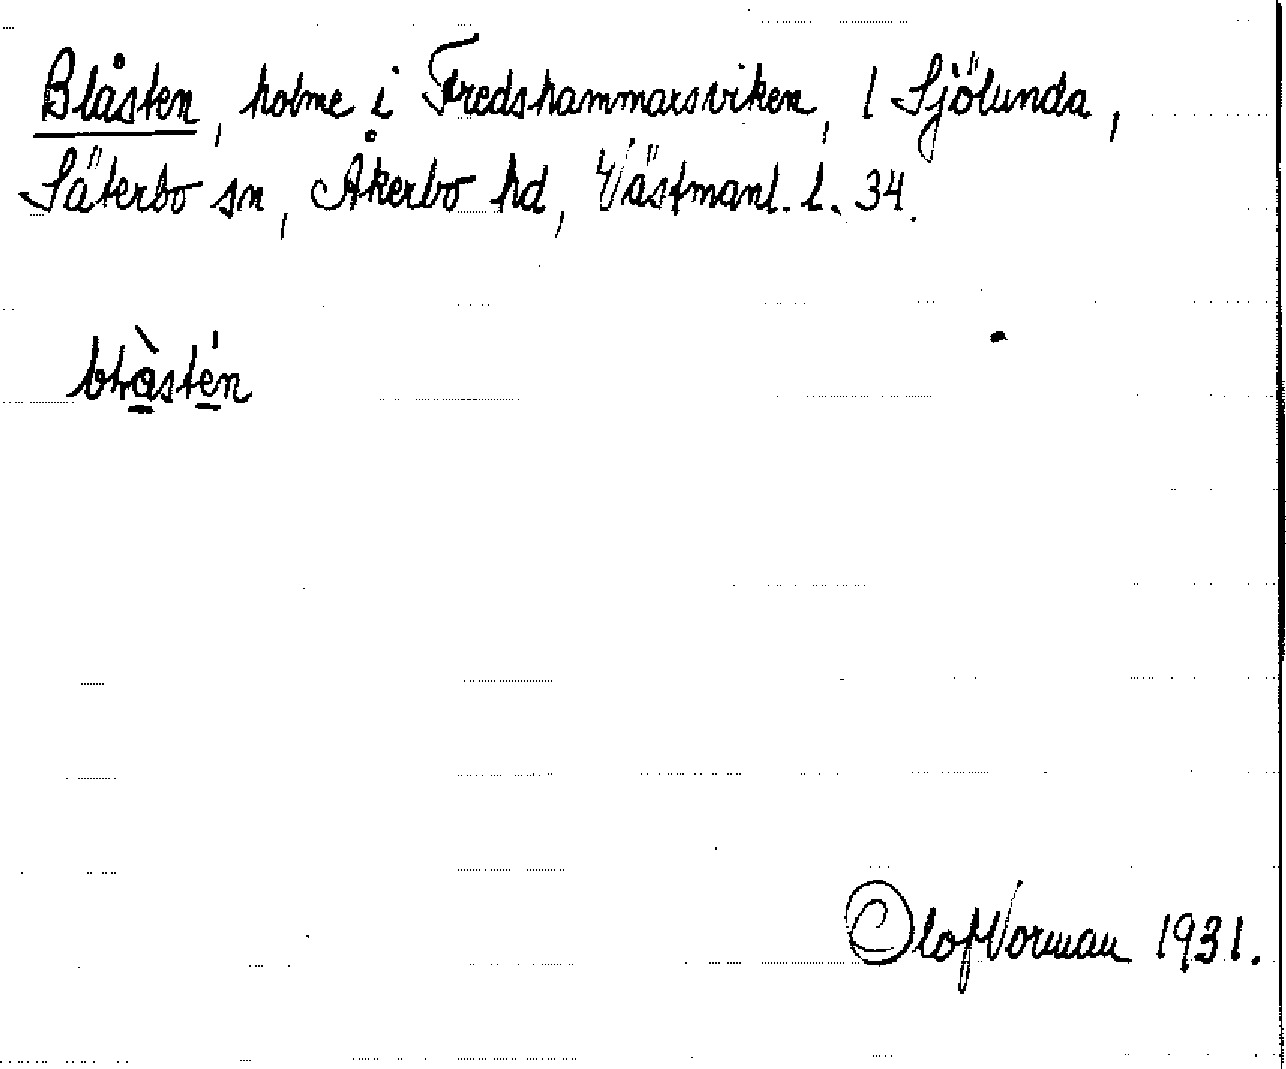 Blåsten, holme i Fredshammarsviken, 1 Sjölunda,
Säterbo sn, Åkerbo hd, Västmanl. l. 34.
blàstén
Olof Vorman 1931.